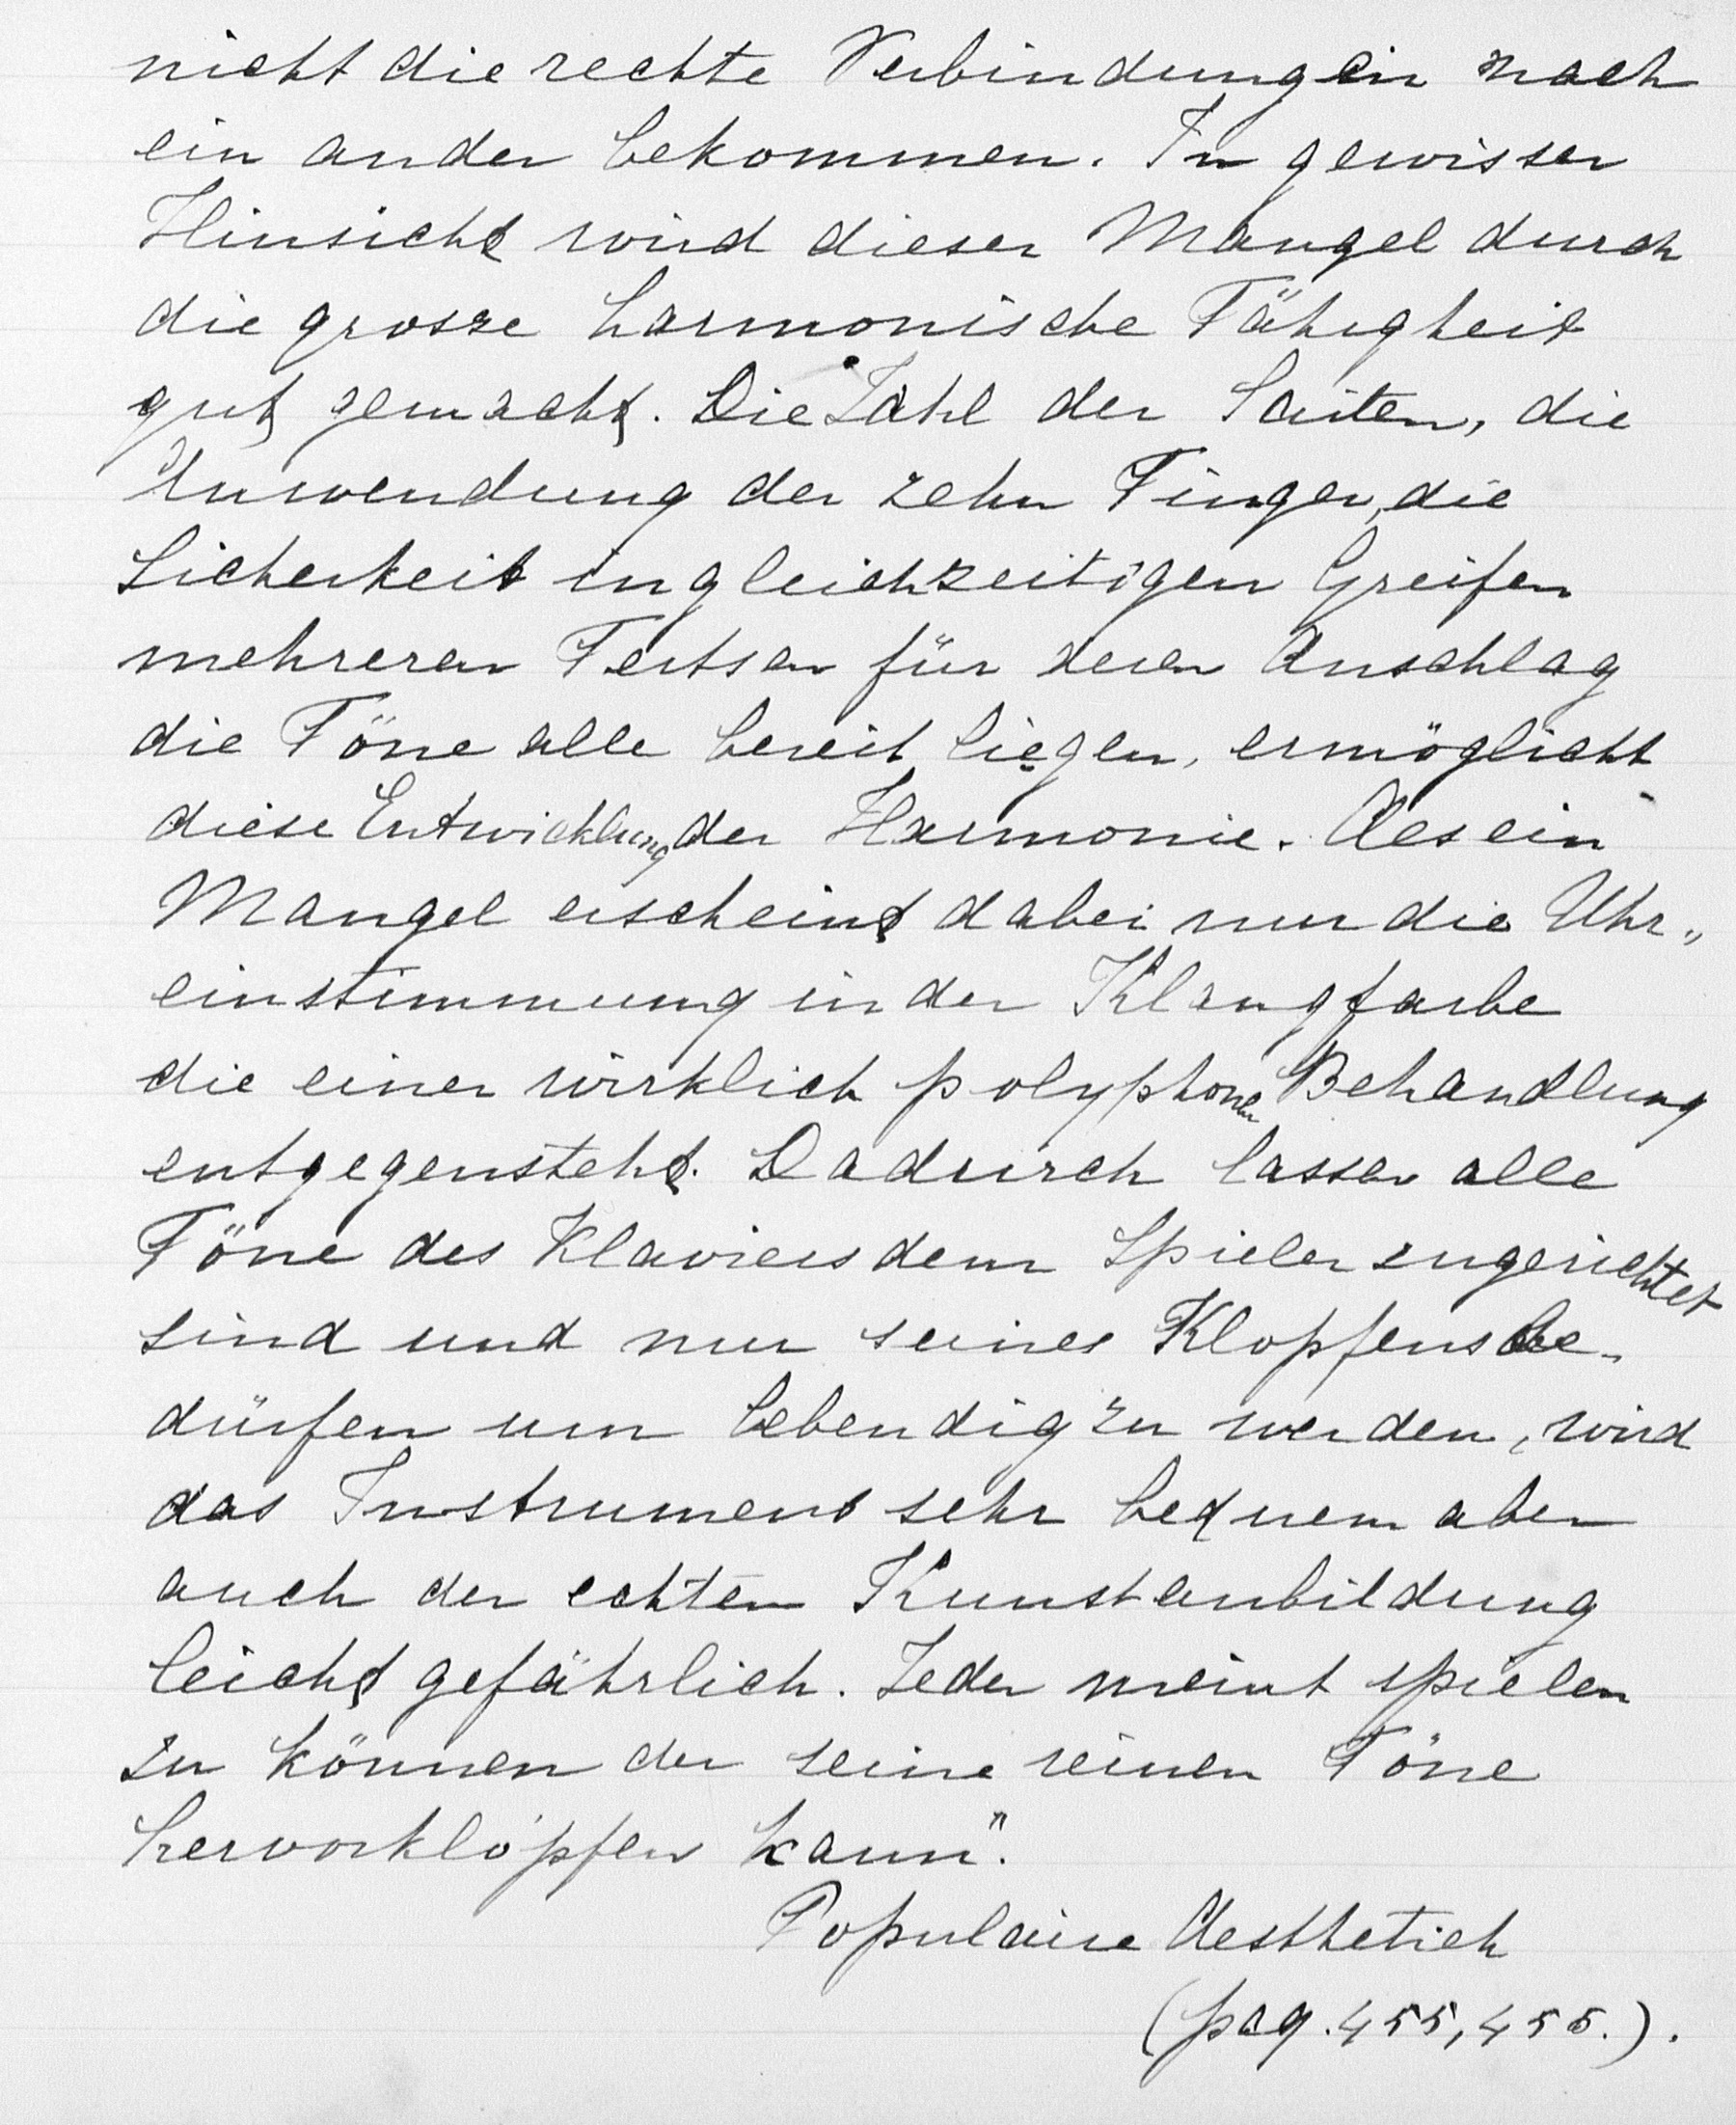 nicht die rechte Verbindung ein nach
ein ander bekommen. In gewisser
Hinsicht wird dieser Mangel durch
die grosse harmonische Fähigheit
gut gemacht. Die Zahl der Saiten, die
Anwendung der zehn Finger, die
Sicherkeit in gleichzeitigen Greifen
mehrerer Tertsen für deren Anschlag
die Töne alle bereit liegen, ermöglicht
diese Entwicklung der Harmonie. Als ein
Mangel erscheint dabei nur die Uhr„
einstimmung in der Klangfarbe
die einer wirklich polyphonen Behandlung
entgegensteht. Dadurch lassen alle
Töne des Klaviers dem Spieler zugerichtet
sind und nur seines Klopfens be-
dürfen um lebendig zu werden, wird
das Instrument sehr bequem aber
auch der echten Kunstanbildung
leicht gefährlich. Jeder meint spielen
zu können der seine reinen Töne
hervorklopfen kann".
Populaire Aesthetich
(pag. 455, 456.).